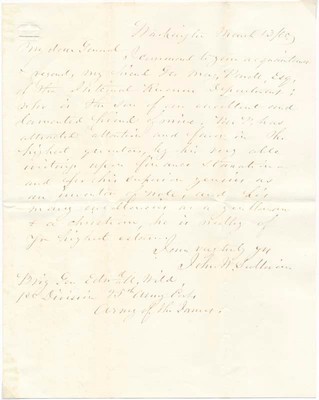 Washington March 13/65
My dear General,
I commend to your acquaintance
friend, my friend
of the Internal Revenue Department;
who is the son of an excellent and
lamented friend of mine. has
attracted attention and favor in the
highest quarters, by his very able
writings upon Finance & Taxation
and after his superior genius as
an inventor of note, and his
many excellencies as a gentleman
& a christian, he is worthy of
yr highest esteem.
Yours very truly yr
John W. Sullivan
Brig Gen Edwd A. Wild,
1st Division 25th Army Corps
Army of the James.